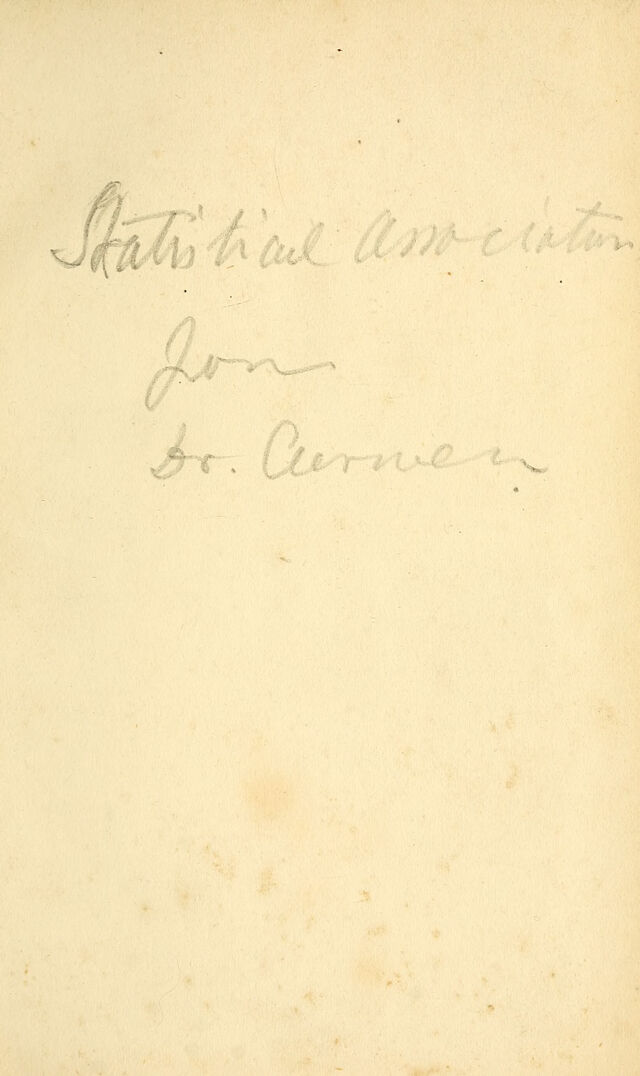 Statistical Association
from
Dr. Curwen